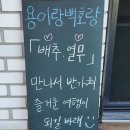 용이랑백호랑
「배추, 열무」
만나서 반가워
즐거운 여행이
되길 바래